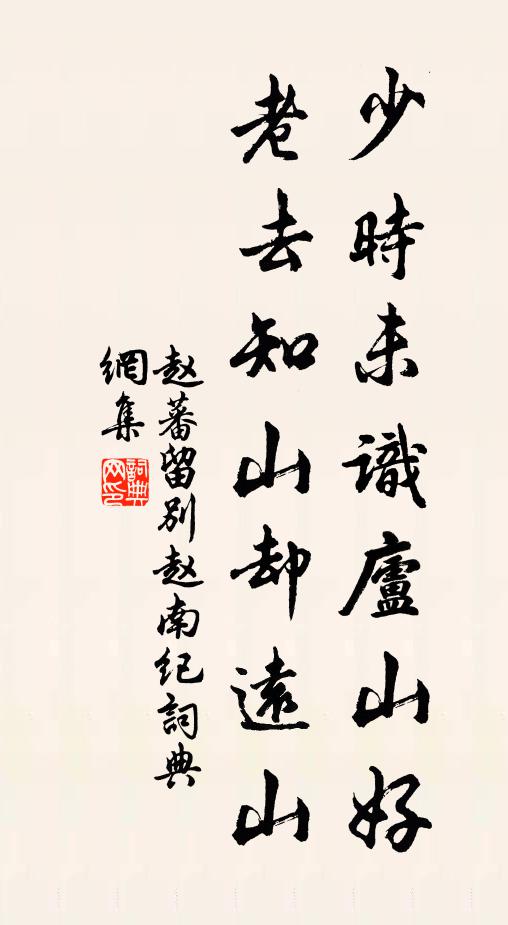 少時未識廬山好
老去知山却遠山
赵蕃留别赵南纪詞典
網集
詞典
网印